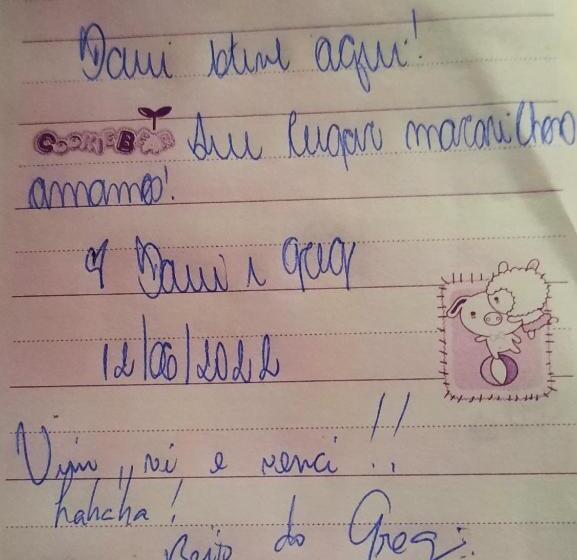 Davi esteve aqui!
COOKIE BEAR
Seu lugar maravilhoso
amamos!
Davi e greg
12/06/2022
Vim, vi e venci !!
hahaha!
Beijo do Greg.